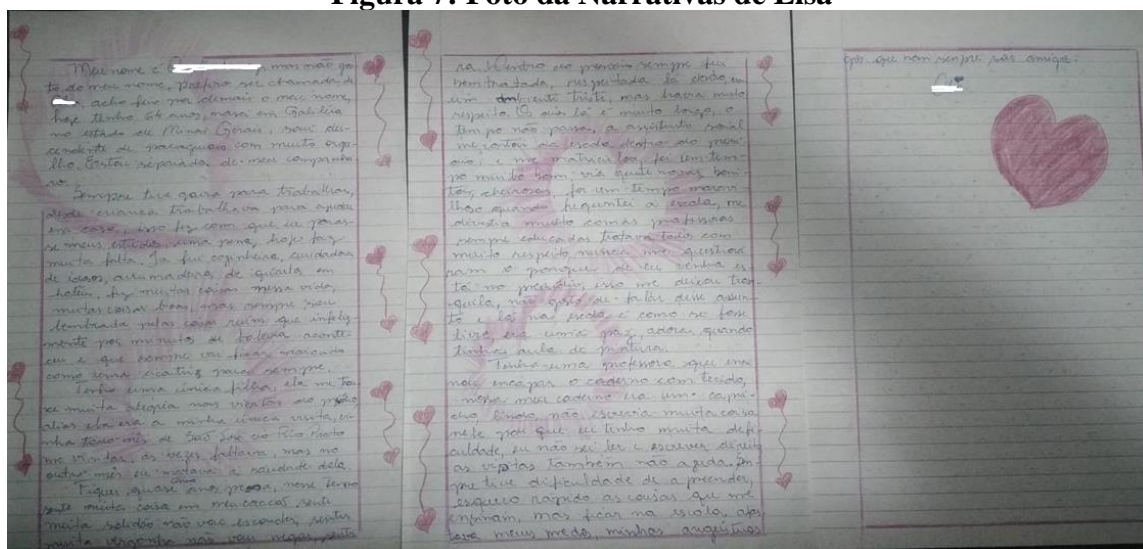 Figura 7: Foto da Narrativas de Elsa
Meu nome é mas não gos
to do meu nome, prefiro ser chamada de
acho feio por demais o meu nome,
hoje tenho 64 anos, nasci em Galileia
no estado de Minas Gerais, sou des-
cendente de paraguaio com muito orgu
lho. Estou separada de meu companhei
ro.
Sempre tive garra para trabalhar,
desde criança trabalhava para ajudar
em casa, isso fez com que eu paras-
se meus estudos, uma pena, hoje faz
muita falta. Ja fui cozinheira, cuidadora
de idosos, arrumadeira de quarto em
hotéis, fiz muitas coisas nessa vida,
muitas coisas boas, mas sempre sou
lembrada pelas coisas ruins que infeliz
mente por minutos de bobeira aconte-
ceu e que sempre vai ficar marcado
como uma cicatriz para sempre.
Tenho uma única filha, ela me trou
xe muita alegria nas visitas ao
alias ela era a minha única visita, vi
nha todo mês de São José do Rio Preto
me visitar, as vezes faltava, mas no
outro mês eu matava a saudade dela.
Fiquei quase anos presa, nesse tempo
senti muita coisa em meu coração, senti
muita solidão não vou esconder, senti
muita vergonha não vou negar, senti
ra. Dentro do presidio sempre fui
bem tratada, respeitada lá dentro, em
um ambiente triste, mas havia muito
respeito. O dia lá é muito longo, o
tempo não passa, a assistente social
me contou da escola dentro do presi
dio, e me matriculou, foi um tem-
po muito bom, via gente novas, boni-
tas, cheirosas, foi um tempo maravi
lhoso quando frequentei a escola, me
divertia muito com as professoras
sempre educadas tratava todos com
muito respeito, nunca me questiona
ram o porque de eu tenha es
ta no presidio, isso me deixou tran-
quila, não gosto de falar desse assun-
to e lá na escola é como se fosse
livre era uma paz, adora quando
tinha aula de pintura.
Tinha uma professora que ensi
nou encapar o caderno com tecido,
nossa meu caderno era um capri-
cho, lindo, não escrevia muita coisa
nele por que eu tenho muita defi-
culdade, eu não sei ler e escrever direito
as vistas também não ajuda, sem-
pre tive dificuldade de aprender,
esqueço rapido as coisas que me
ensinam, mas ficar na escola, afas
tava meus medo, minhas angústias
que nem sempre são amiga.